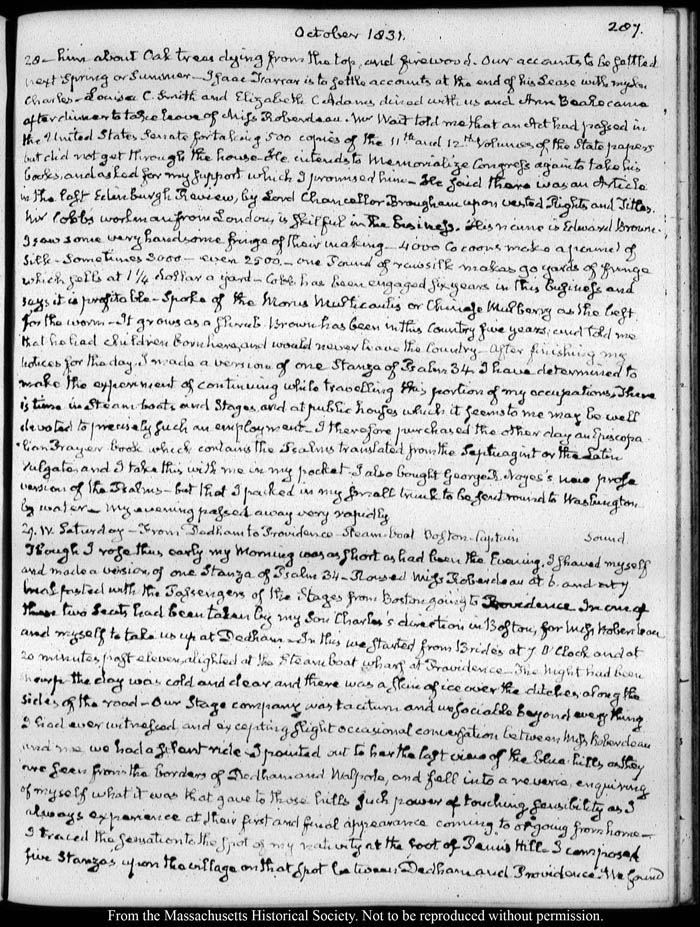 October 1831.
287.
28 — him about Oak trees dying from the top, and firewood. Our accounts to be settled
next Spring or Summer — Isaac Farrar is to settle accounts at the end of his Lease with my Son
Charles — Louisa C. Smith and Elizabeth C Adams dined with us and Ann Beale came
after dinner to take leave of Miss Roberdeau. Mr Wait told me that an Act had passed in
the United States Senate for taking 500 copies of the 11th and 12th Volumes of the State papers
but did not get through the house. He intends to Memorialize Congress again to take his
books, and asked for my support which I promised him — He said there was an Article
in the last Edinburgh Review, by Lord Chancellor Brougham upon vested Rights and Titles.
Mr Cobb's workman from London, is skilful in the business. His name is Edward Brown.
I saw some very handsome fringe of their making — 4000 Cocoons make a pound of
Silk — Sometimes 3000 — even 2500 — one Pound of raw silk makes 90 yards of fringe
which sells at 1¼ dollar a yard — Cobb has been engaged six years in this business and
says it is profitable — Spoke of the Morus Multicaulis or Chinese Mulberry as the best
for the worm — It grows as a shrub. Brown has been in this Country five years; and told me
that he had children born here, and would never leave the Country — After finishing my
notices for the day, I made a version of one Stanza of Psalm 34. I have determined to
make the experiment of continuing while travelling this portion of my occupations. There
is time in Steam-boats and Stages, and at public houses which it seems to me may be well
devoted to precisely such an employment — I therefore purchased the other day an Episcopa-
lian Prayer book which contains the Psalms translated from the Septuagint or the Latin
Vulgate, and I take this with me in my pocket. I also bought George R. Noyes's new prose
version of the Psalms — but that I packed in my small trunk to be sent round to Washington
by water — My evening passed away very rapidly
29. IV. Saturday — From Dedham to Providence — Steam-boat Boston — Captain Sound.
Though I rose thus early my Morning was as short as had been the Evening. I shaved myself
and made a version of one Stanza of Psalm 34 — Roused Miss Roberdeau at 6. and at 7
breakfasted with the Passengers of the Stages from Boston going to Providence. In one of
these two Seats had been taken by my Son Charles's direction in Boston, for Miss Roberdeau
and myself to take us up at Dedham — In this we started from Brides at 7 O'Clock and at
20 minutes past eleven, alighted at the Steam boat wharf at Providence — The Night had been
sharp the day was cold and clear and there was a skim of ice over the ditches along the
sides of the road — Our Stage company was taciturn and unsociable beyond every thing
I had ever witnessed, and excepting slight occasional conversation between Miss Roberdeau
and me, we had a silent ride. I pointed out to her the last view of the blue hills as they
are seen from the borders of Dedham and Walpole, and fell into a reverie, enquiring
of myself what it was that gave to those hills such power of touching sensibility as I
always experience at their first and final appearance coming to or going from home —
I traced the sensation to the spot of my nativity at the foot of Penn's Hill. I composed
five Stanzas upon the village on that spot between Dedham and Providence. We found
From the Massachusetts Historical Society. Not to be reproduced without permission.